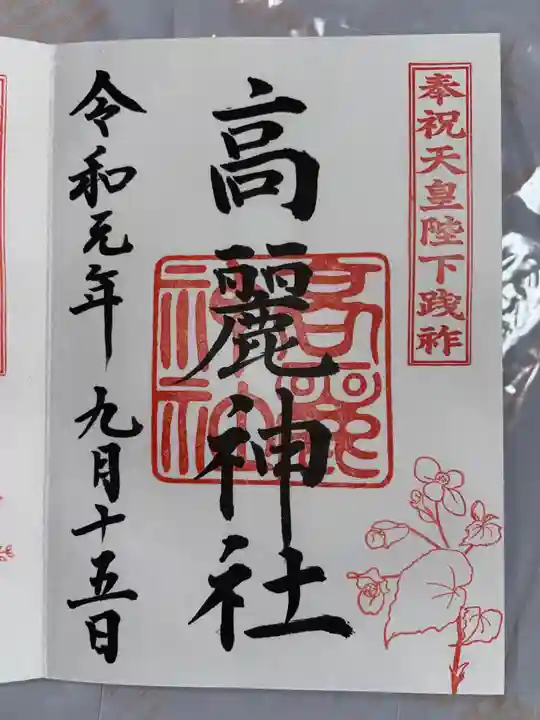 奉祝天皇陛下践祚
高麗神社
令和元年 九月十五日
高麗神社